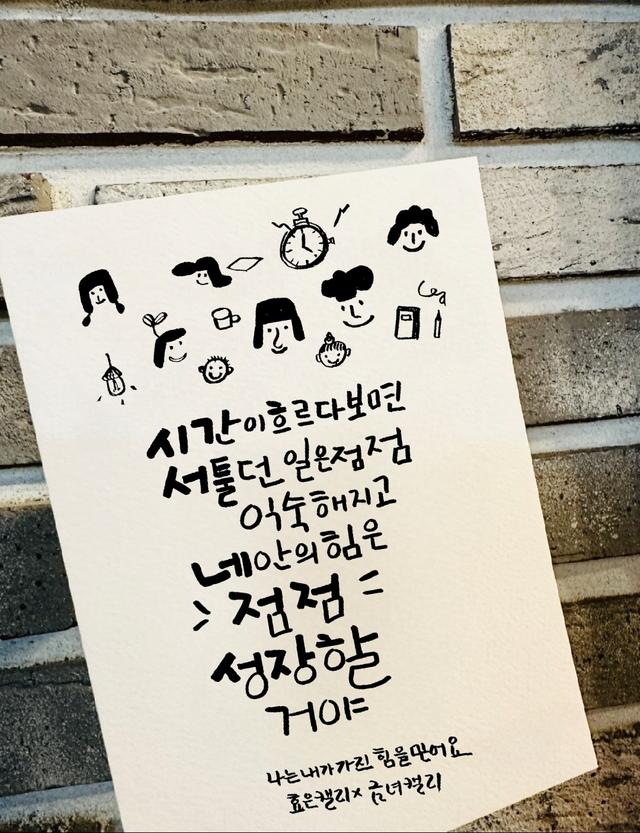 시간이흐르다보면
서툴던 일은점점
익숙해지고
네안의힘은
점점
성장할
거야
나는내가가진 힘을믿어요
효은캘리x 금녀캘리